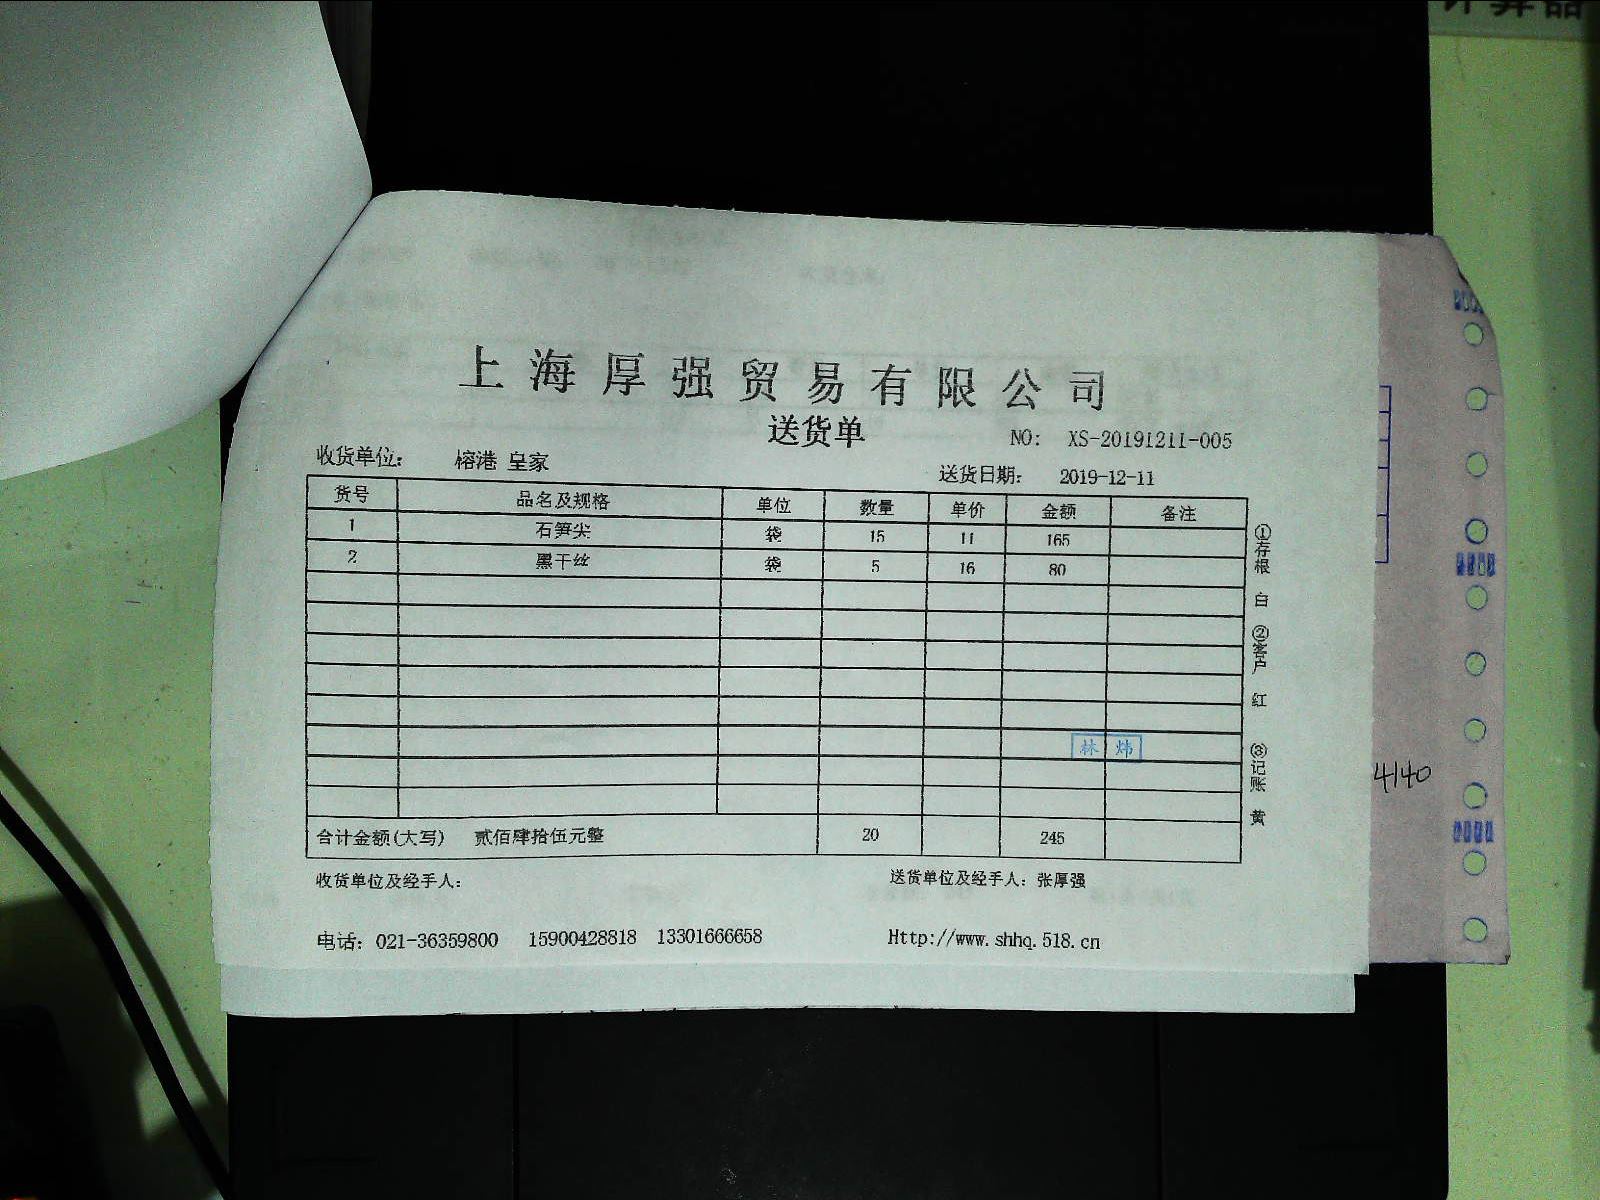 上海厚强贸易有限公司
送货单
NO: XS-20191211-005
收货单位: 榕港 皇家
送货日期: 2019-12-11
货号 品名及规格 单位 数量 单价 金额 备注
1 石笋尖 袋 15 11 165
2 黑干丝 袋 5 16 80
林炜
合计金额(大写) 贰佰肆拾伍元整 20 245
收货单位及经手人:
送货单位及经手人: 张厚强
电话: 021-36359800 15900428818 13301666658
Http://www.shhq.518.cn
①存根 白 ②客户 红 ③记账 黄
4140
计算器